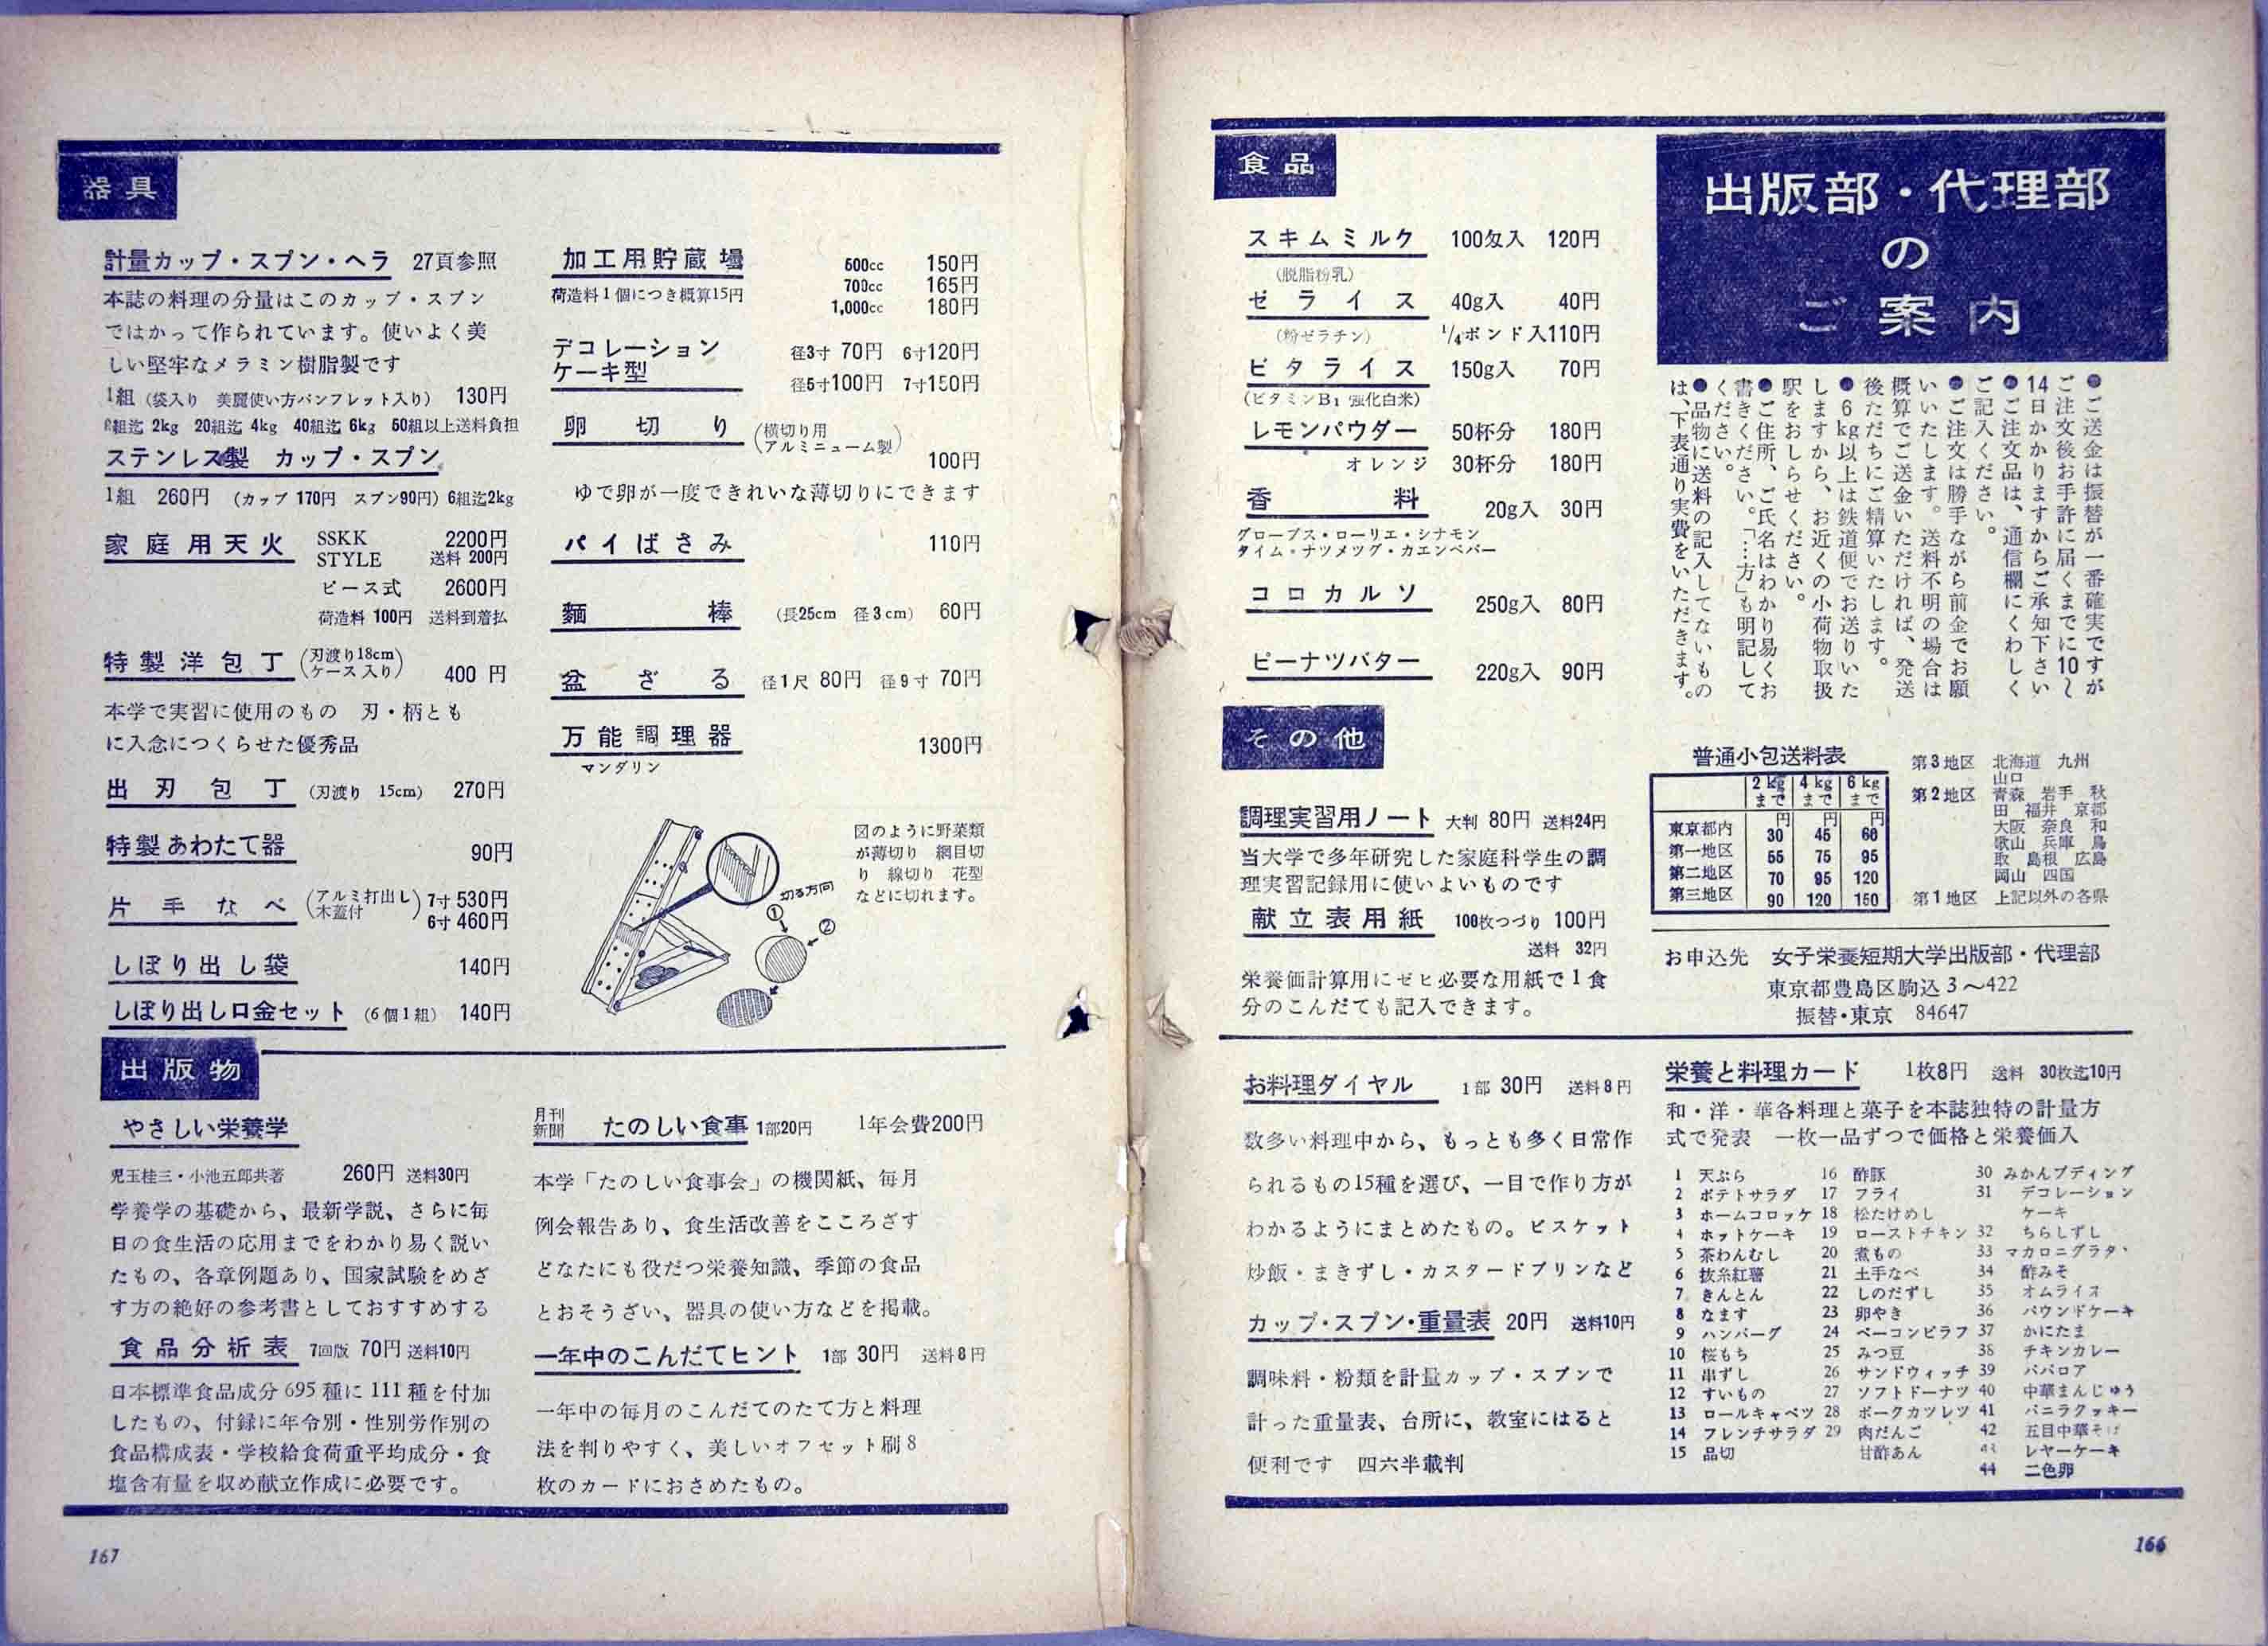 出版部・代理部
の
ご案内
●ご送金は振替が一番確実ですが
ご注文後お手許に届くまでに10〜
14日かかりますからご承知下さい
●ご注文品は、通信欄にくわしく
ご記入ください。
●ご注文は勝手ながら前金でお願
いいたします。送料不明の場合は
概算でご送金いただければ、発送
後ただちにご精算いたします。
●6kg以上は鉄道便でお送りいた
しますから、お近くの小荷物取扱
駅をおしらせください。
●ご住所、ご氏名はわかり易くお
書きください。「…方」も明記して
ください。
●品物に送料の記入してないもの
は、下表通り実費をいただきます。
普通小包送料表
2kgまで 4kgまで 6kgまで
東京都内 30円 45円 60円
第一地区 55 75 95
第二地区 70 95 120
第三地区 90 120 150
第3地区 北海道 九州
山口
第2地区 青森 岩手 秋
田 福井 京都
大阪 奈良 和
歌山 兵庫 鳥
取 島根 広島
岡山 四国
第1地区 上記以外の各県
お申込先 女子栄養短期大学出版部・代理部
東京都豊島区駒込3〜422
振替・東京 84647
食品
スキムミルク 100匁入 120円
(脱脂粉乳)
ゼライス 40g入 40円
(粉ゼラチン) 1/4ポンド入110円
ビタライス 150g入 70円
(ビタミンB1強化白米)
レモンパウダー 50杯分 180円
オレンジ 30杯分 180円
香料 20g入 30円
グローブス・ローリエ・シナモン
タイム・ナツメツグ・カエンペパー
コロカルソ 250g入 80円
ピーナツバター 220g入 90円
その他
調理実習用ノート 大判 80円 送料24円
当大学で多年研究した家庭科学生の調
理実習記録用に使いよいものです
献立表用紙 100枚つづり 100円
送料 32円
栄養価計算用にゼヒ必要な用紙で1食
分のこんだても記入できます。
お料理ダイヤル 1部 30円 送料8円
数多い料理中から、もっとも多く日常作
られるもの15種を選び、一目で作り方が
わかるようにまとめたもの。ビスケット
炒飯・まきずし・カスタードプリンなど
カップ・スプン・重量表 20円 送料10円
調味料・粉類を計量カップ・スプンで
計った重量表、台所に、教室にはると
便利です 四六半裁判
栄養と料理カード 1枚8円 送料 30枚迄10円
和・洋・華各料理と菓子を本誌独特の計量方
式で発表 一枚一品ずつで価格と栄養価入
1 天ぷら
2 ポテトサラダ
3 ホームコロッケ
4 ホットケーキ
5 茶わんむし
6 抜糸紅薯
7 きんとん
8 なます
9 ハンバーグ
10 桜もち
11 串ずし
12 すいもの
13 ロールキャベツ
14 フレンチサラダ
15 品切
16 酢豚
17 フライ
18 松たけめし
19 ローストチキン
20 煮もの
21 土手なべ
22 しのだずし
23 卵やき
24 ベーコンピラフ
25 みつ豆
26 サンドウィッチ
27 ソフトドーナツ
28 ポークカツレツ
29 肉だんご
甘酢あん
30 みかんプディング
31 デコレーション
ケーキ
32 ちらしずし
33 マカロニグラタ
34 酢みそ
35 オムライス
36 パウンドケーキ
37 かにたま
38 チキンカレー
39 ババロア
40 中華まんじゅう
41 バニラクッキー
42 五目中華そば
43 レヤーケーキ
44 二色卵
166
器具
計量カップ・スプン・ヘラ 27頁参照
本誌の料理の分量はこのカップ・スプン
ではかって作られています。使いよく美
しい堅牢なメラミン樹脂製です
1組 (袋入り 美麗使い方パンフレット入り) 130円
組迄 2kg 20組迄 4kg 40組迄 6kg 50組以上送料負担
ステンレス製 カップ・スプン
1組 260円 (カップ 170円 スプン90円) 6組迄2kg
家庭用天火 SSKK 2200円
STYLE 送料 200円
ピース式 2600円
荷造料 100円 送料到着払
特製洋包丁 (刃渡り18cm ケース入り) 400円
本学で実習に使用のもの 刃・柄とも
に入念につくらせた優秀品
出刃包丁 (刃渡り 15cm) 270円
特製あわたて器 90円
片手なべ (アルミ打出し 木蓋付) 7寸 530円
6寸 460円
しぼり出し袋 140円
しぼり出し口金セット (6個1組) 140円
加工用貯蔵壜 500cc 150円
荷造料1個につき概算15円 700cc 165円
1,000cc 180円
デコレーション
ケーキ型
径3寸 70円 6寸120円
径5寸100円 7寸150円
卵切り (横切り用 アルミニューム製) 100円
ゆで卵が一度できれいな薄切りにできます
パイばさみ 110円
麺棒 (長25cm 径3cm) 60円
盆ざる 径1尺 80円 径9寸 70円
万能調理器 1300円
マンダリン
図のように野菜類
が薄切り 網目切
り 線切り 花型
などに切れます。
切る方向
①
②
出版物
やさしい栄養学
児玉桂三・小池五郎共著 260円 送料30円
学養学の基礎から、最新学説、さらに毎
日の食生活の応用までをわかり易く説い
たもの、各章例題あり、国家試験をめざ
す方の絶好の参考書としておすすめする
食品分析表 7回版 70円 送料10円
日本標準食品成分695種に111種を付加
したもの、付録に年令別・性別労作別の
食品構成表・学校給食荷重平均成分・食
塩含有量を収め献立作成に必要です。
月刊新聞 たのしい食事 1部20円 1年会費200円
本学「たのしい食事会」の機関紙、毎月
例会報告あり、食生活改善をこころざす
どなたにも役だつ栄養知識、季節の食品
とおそうざい、器具の使い方などを掲載。
一年中のこんだてヒント 1部 30円 送料8円
一年中の毎月のこんだてのたて方と料理
法を判りやすく、美しいオフセット刷8
枚のカードにおさめたもの。
167